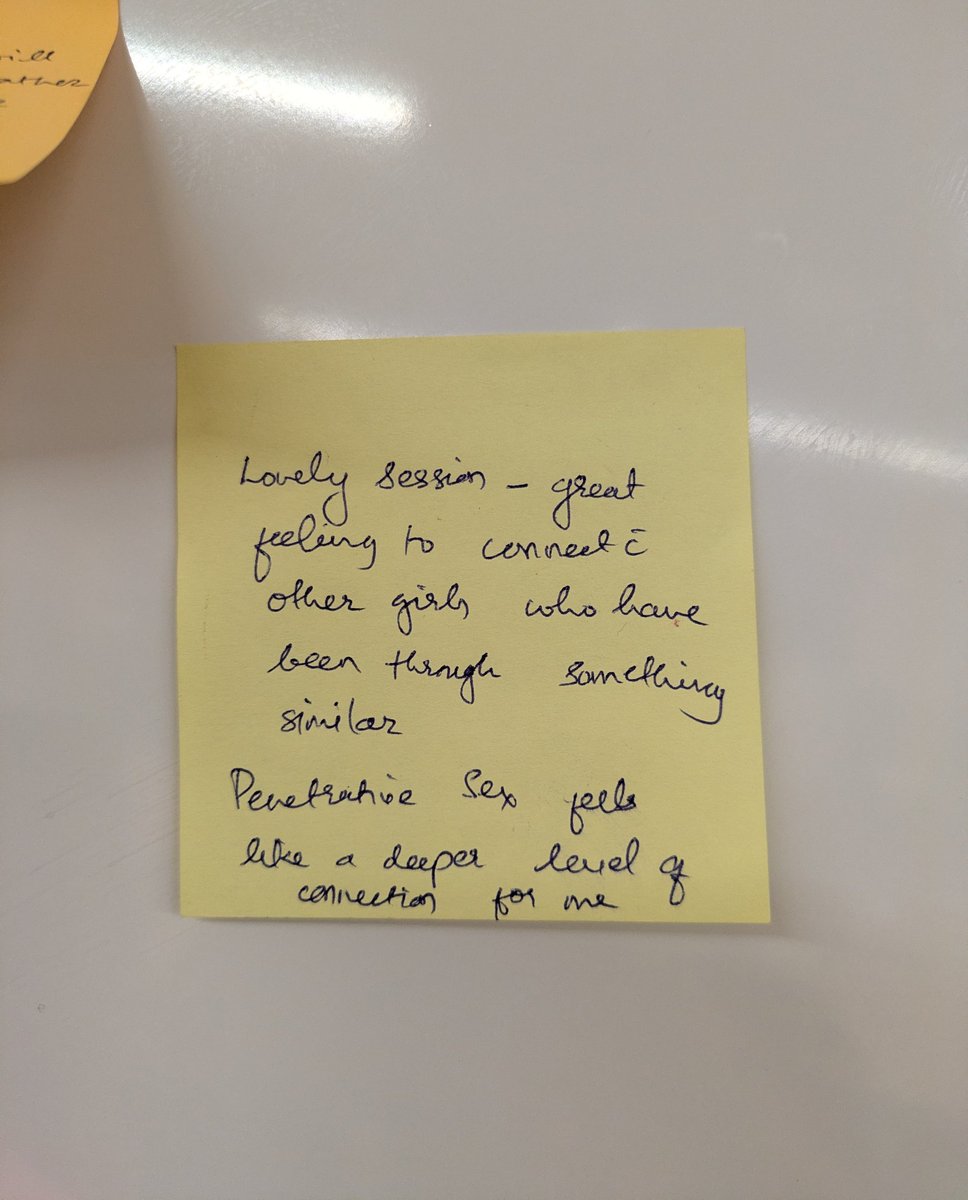 ill
ather
Lovely session - great
feeling to connect c̄
other girls who have
been through something
similar
Penetrative Sex feels
like a deeper level of
connection for me